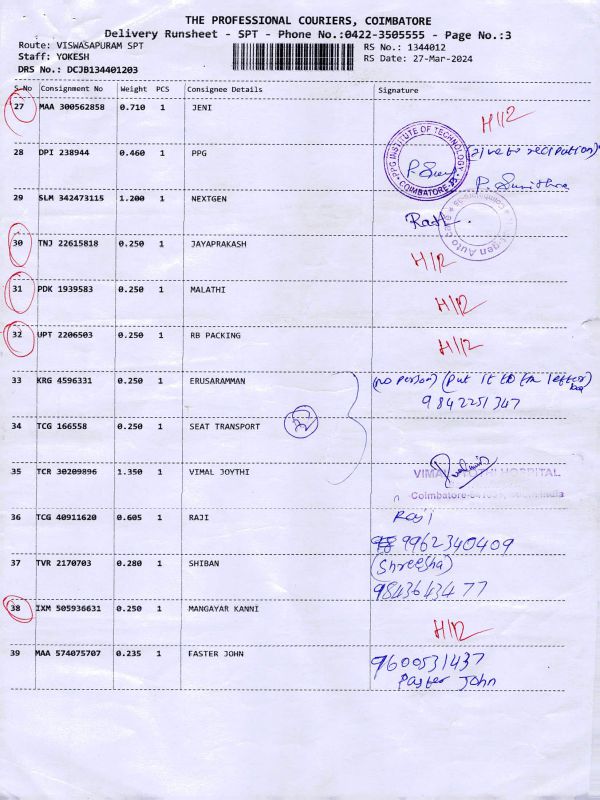 THE PROFESSIONAL COURIERS, COIMBATORE
Delivery Runsheet - SPT - Phone No.:0422-3505555 - Page No.:3
Route: VISWASAPURAM SPT
RS No.: 1344012
Staff: YOKESH
RS Date: 27-Mar-2024
DRS No.: DCJB134401203
S-No Consignment No Weight PCS Consignee Details Signature
27 MAA 300562858 0.710 1 JENI H/12
28 DPI 238944 0.460 1 PPG
PPG INSTITUTE OF TECHNOLOGY
COIMBATORE-35
P. Sumithra
29 SLM 342473115 1.200 1 NEXTGEN
30 TNJ 22615818 0.250 1 JAYAPRAKASH H/12
31 PDK 1939583 0.250 1 MALATHI H/12
32 UPT 2206503 0.250 1 RB PACKING H/12
33 KRG 4596331 0.250 1 ERUSARAMMAN (no person) (put it to letter)
9842251347
34 TCG 166558 0.250 1 SEAT TRANSPORT
35 TCR 30209896 1.350 1 VIMAL JOYTHI
HOSPITAL
Coimbatore
India
36 TCG 40911620 0.605 1 RAJI Raji
9962340409
37 TVR 2170703 0.280 1 SHIBAN (Shreesha)
9843643477
38 IXM 505936631 0.250 1 MANGAYAR KANNI H/12
39 MAA 574075707 0.235 1 FASTER JOHN 9600531437
Paster John